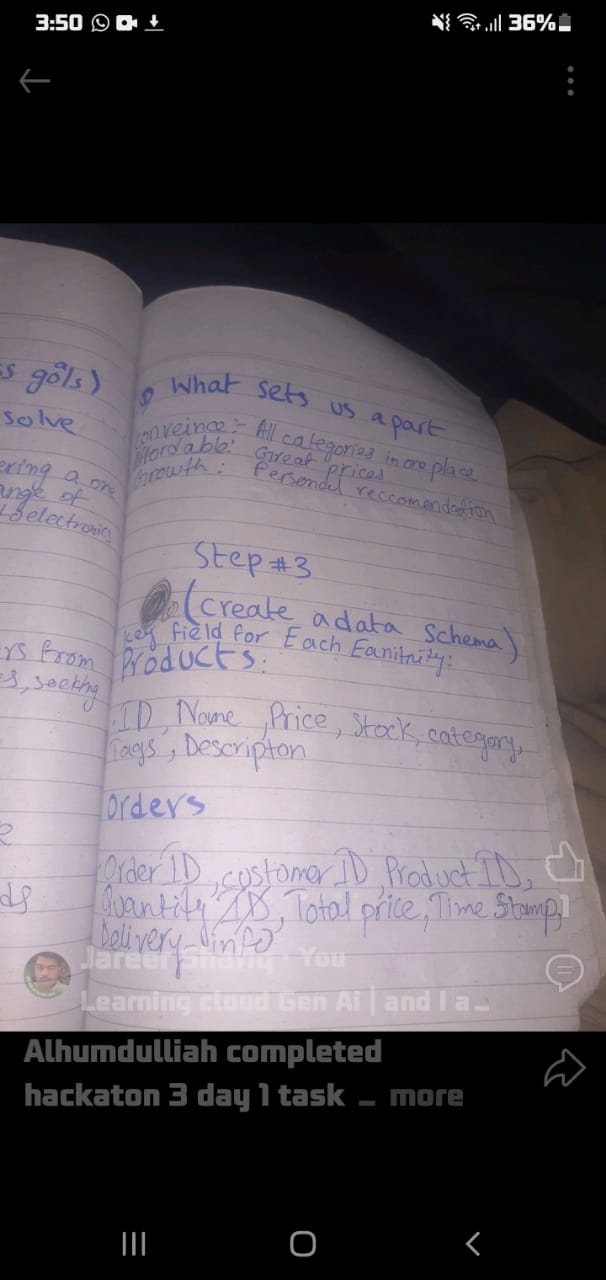 3:50
36%
s goals)
solve
ering a one
ange of
to electronics
rs from
es, seekhg
ds
What sets us apart
Conveince :- All categories in one place
Affordable: Great prices
Growth: Personal reccomendation
Step #3
(create a data Schema)
key field for Each Eanitnity:
Products:
ID, Name, Price, Stock, category,
Tags, Descripton
Orders
Order ID, customer ID, Product ID,
Quantity, Total price, Time Stamp,
Delivery-info
Jareer Shafiq · You
1
Learning cloud Gen Ai | and I a...
Alhumdulliah completed
hackaton 3 day 1 task ... more